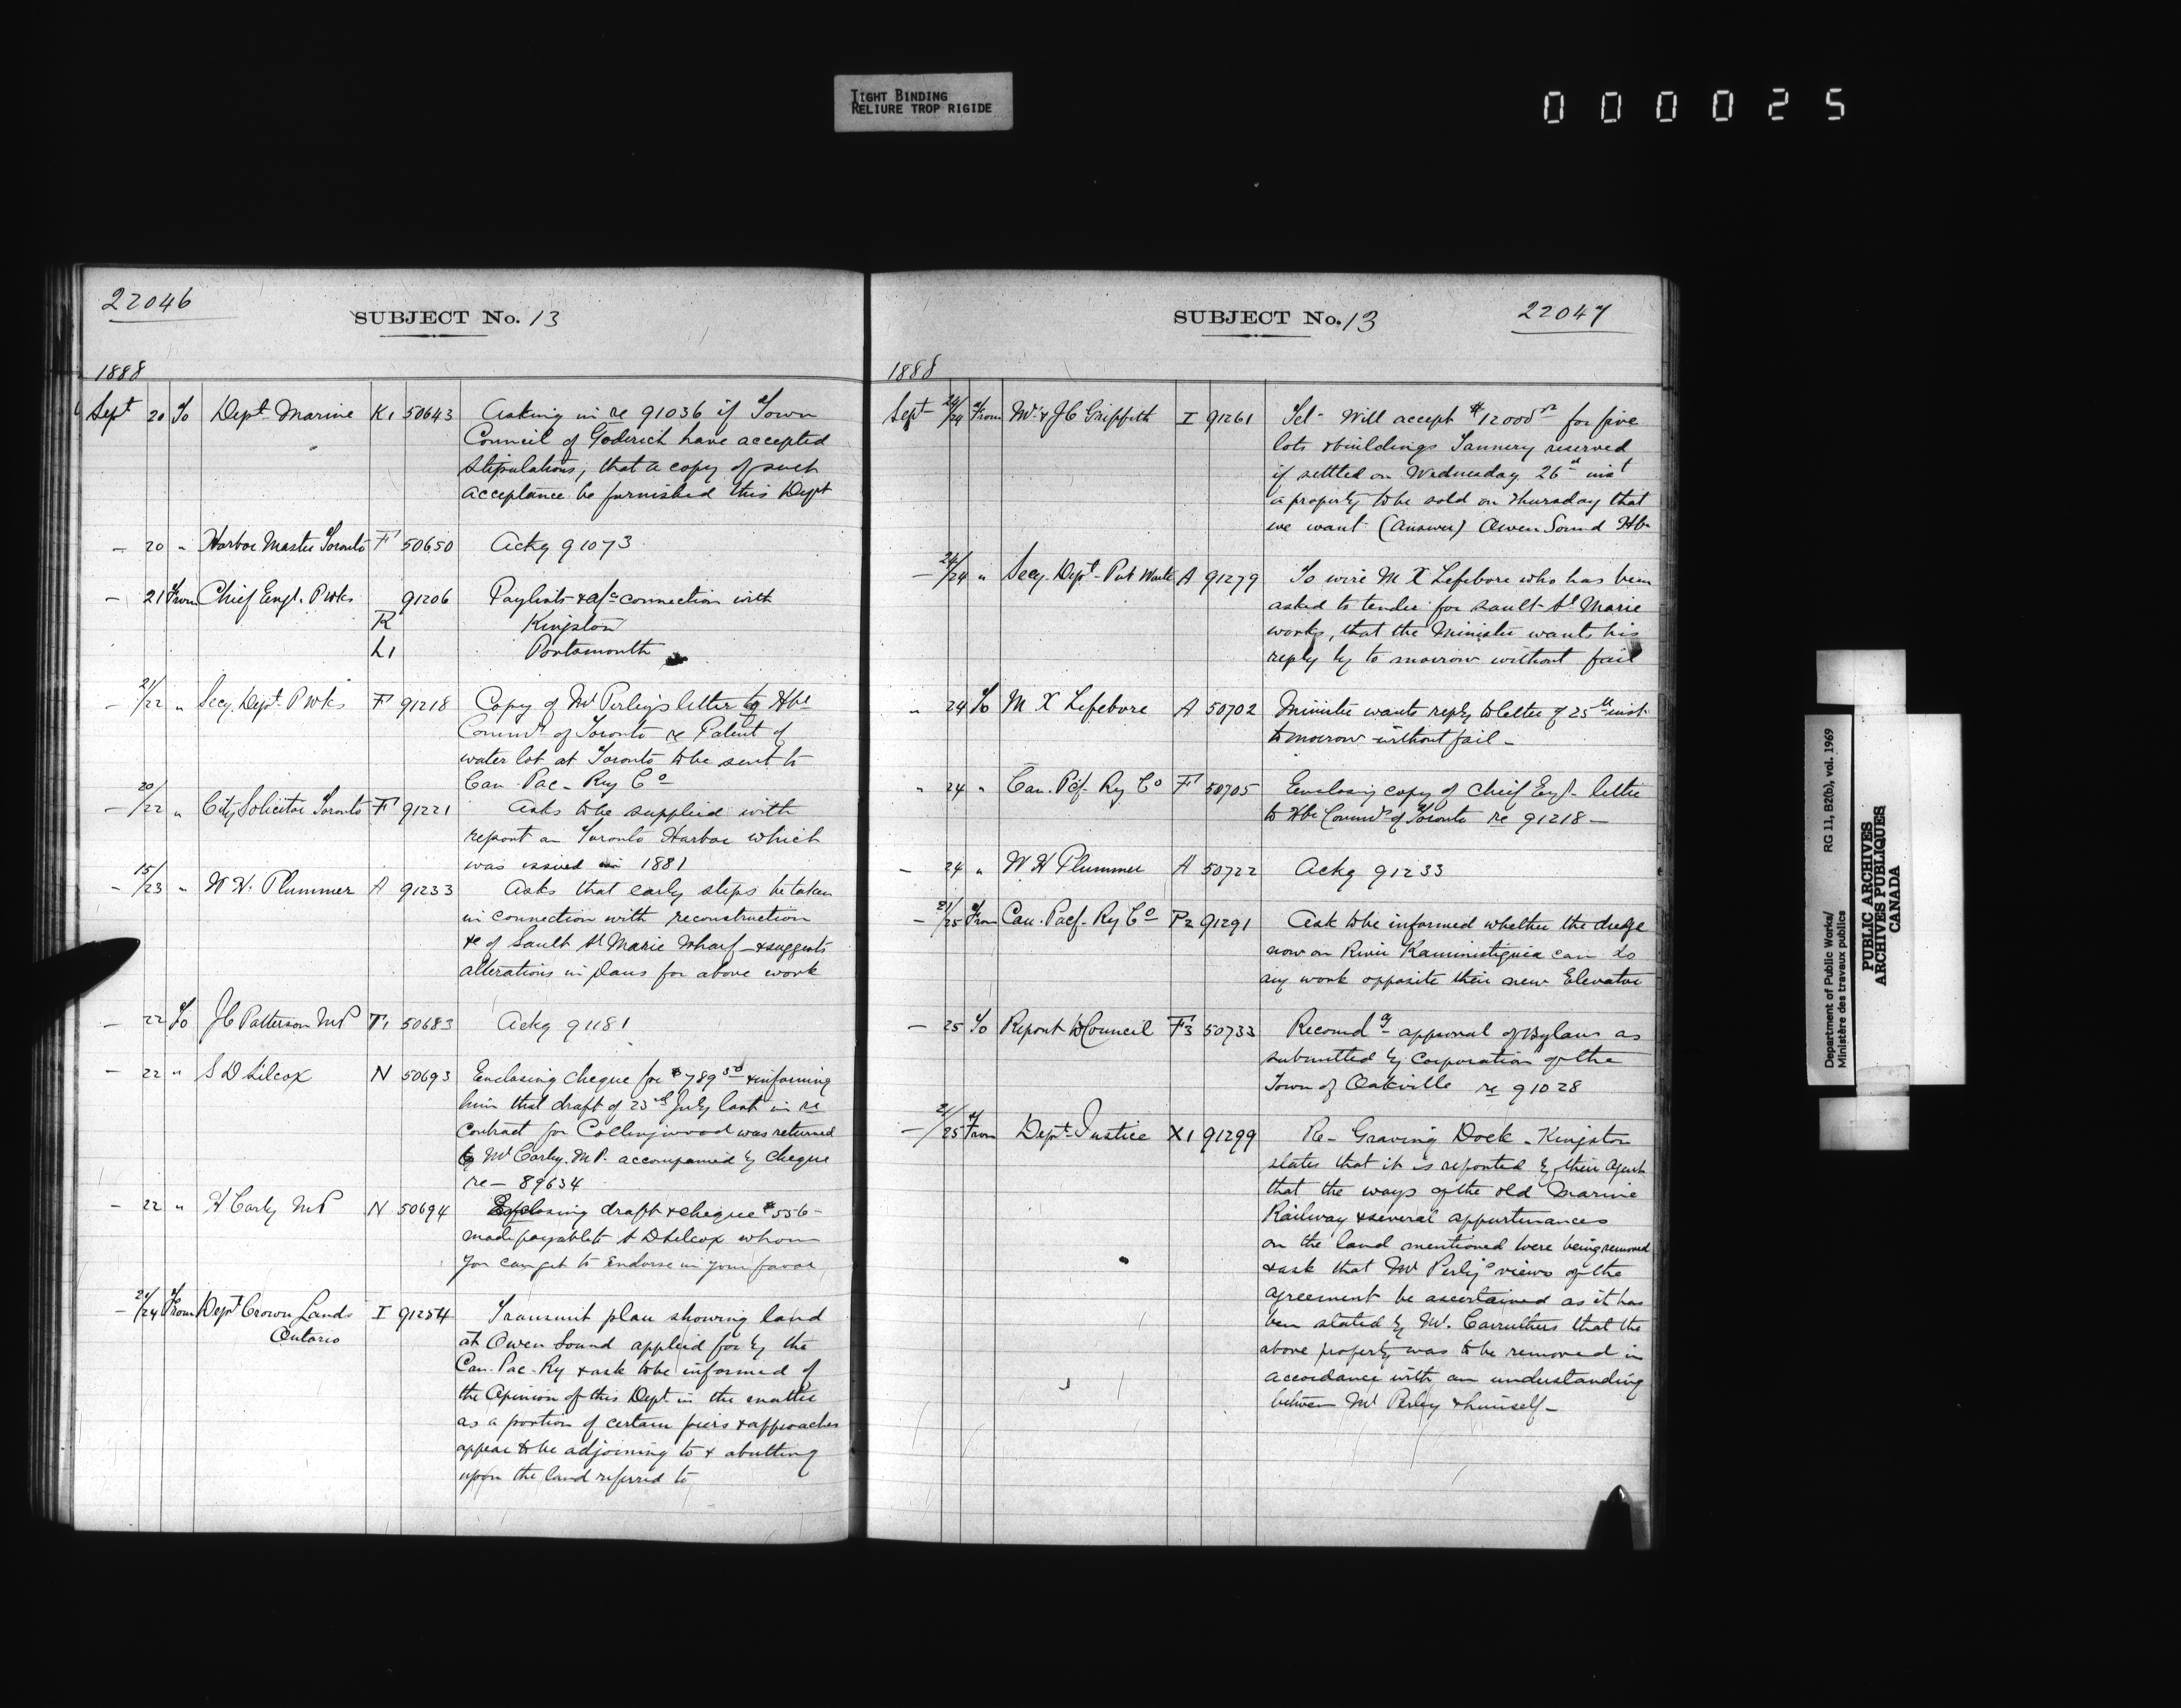 TIGHT BINDING
RELIURE TROP RIGIDE
000025
22046
SUBJECT No. 13
1888
Sept 20 To Dept. Marine K1 50643 Asking in re 91036 if Town
Council of Goderich have accepted
stipulations, that a copy of such
acceptance be furnished this Dept
— 20 " Harbor Master Toronto F 50650 Ackg 91073
— 21 From Chief Engr. P Wks 91206 Paylists & a/cs connection with
R Kingston
L1 Portsmouth
— 21/22 " Secy. Dept. P Wks F 91218 Copy of Mr Perley's letter to Hbr
Commrs of Toronto re Patent of
water lot at Toronto to be sent to
Can. Pac. Ry Co
— 20/22 " City Solicitor Toronto F 91221 Asks to be supplied with
report on Toronto Harbor which
was issued in 1881
— 15/23 " W. H. Plummer A 91233 Asks that early steps be taken
in connection with reconstruction
&c of Sault St Marie Wharf — & suggests
alterations in plans for above work
— 22 To J C Patterson MP T1 50683 Ackg 91181
— 22 " S D Silcox N 50693 Enclosing cheque for $789 50 & informing
him that draft of 23rd July last in re
contract for Collingwood was returned
to Mr Carby. M.P. accompanied by cheque
re — 89634
— 22 " H Carby MP N 50694 Enclosing draft & cheque $556 —
made payable to S D Silcox whom
you can get to endorse in your favor
— 21/24 From Dept Crown Lands I 91254 Transmit plan showing land
Ontario
at Owen Sound applied for by the
Can. Pac. Ry & ask to be informed of
the opinion of this Dept. in the matter
as a portion of certain piers & approaches
appear to be adjoining to & abutting
upon the land referred to
SUBJECT No. 13
22047
1888
Sept 24/24 From Wm & J C Griffith I 91261 Tel. Will accept $12000 for five
lots & buildings Tannery reserved
if settled on Wednesday 26th inst
a property to be sold on Thursday that
we want (Answer) Owen Sound Hbr
— 24/24 " Secy. Dept. Pub Works A 91279 To wire M X Lefebvre who has been
asked to tender for Sault St Marie
works, that the Minister wants his
reply by to morrow without fail
" 24 To M X Lefebvre A 50702 Minister wants reply to letter of 25th inst.
tomorrow without fail —
" 24 " Can. Pcf. Ry Co F 50705 Enclosing copy of Chief Engr. letter
to Hbr Commrs of Toronto re 91218 —
— 24 " W H Plummer A 50722 Ackg 91233
— 21/25 From Can. Pacf. Ry Co P2 91291 Ask to be informed whether the dredge
now on River Kaministiquia can do
any work opposite their new Elevator
— 25 To Report to Council F3 50733 Recomdg approval of Bylaws as
submitted by Corporation of the
Town of Oakville re 91028
— 21/25 From Dept. Justice X1 91299 Re — Graving Dock — Kingston
states that it is reported by their Agent
that the ways of the old Marine
Railway & several appurtenances
on the land mentioned were being removed
& ask that Mr Perley's views of the
agreement be ascertained as it has
been stated by Mr. Carruthers that the
above property was to be removed in
accordance with an understanding
between Mr Perley & himself —
Department of Public Works/
Ministère des travaux publics
RG 11, B2(b), vol. 1969
PUBLIC ARCHIVES
ARCHIVES PUBLIQUES
CANADA